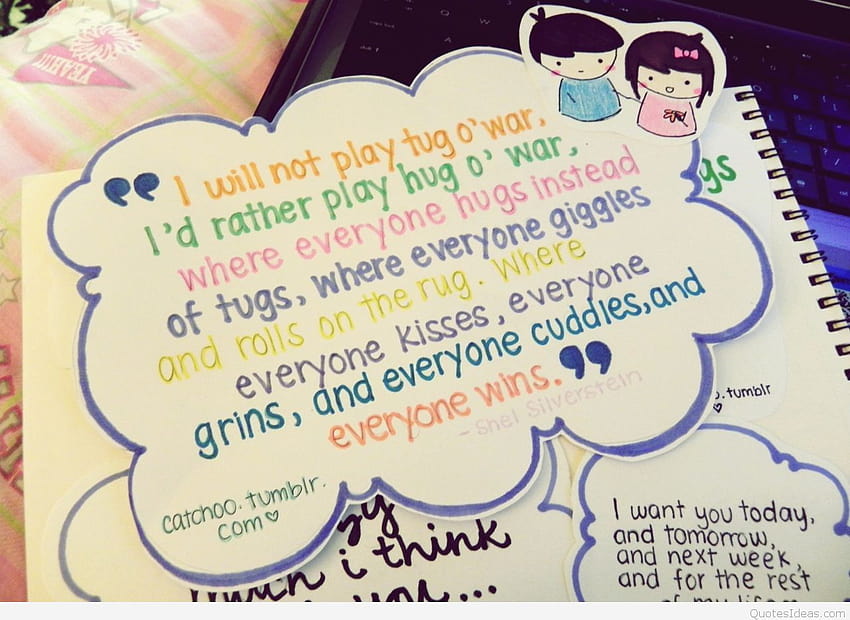 YEAH!!!
“ I will not play tug o' war,
I'd rather play hug o' war,
where everyone hugs instead
of tugs, where everyone giggles
and rolls on the rug. Where
everyone kisses, everyone
grins, and everyone cuddles, and
everyone wins. ”
- Shel Silverstein
catchoo.tumblr.
com ♡
gs
.tumblr
♡
i think
I want you today,
and tomorrow,
and next week,
and for the rest
of my
QuotesIdeas.com